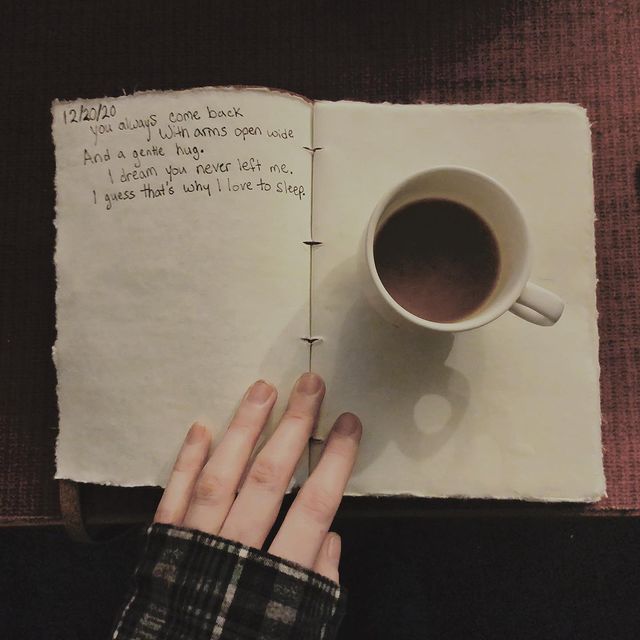 12/20/20
you always come back
With arms open wide
And a gentle hug.
I dream you never left me.
I guess that's why I love to sleep.